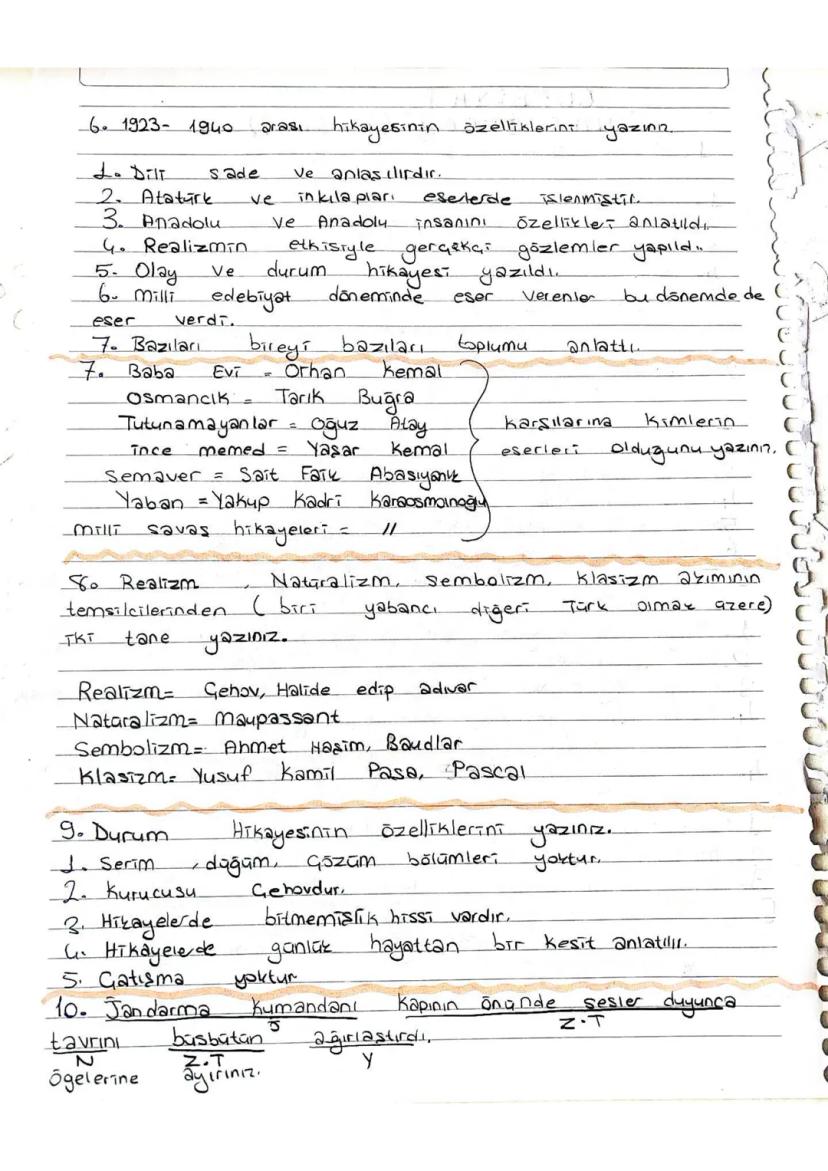 6. 1923- 1940 arası hikayesinin özelliklerini yazınız.
1. Dili sade ve anlaşılırdır.
2. Atatürk ve inkılapları eserlerde işlenmiştir.
3. Anadolu ve Anadolu insanını özellikleri anlatıldı.
4. Realizmin etkisiyle gerçekçi gözlemler yapıldı.
5- Olay ve durum hikayesi yazıldı.
6- Milli edebiyat döneminde eser verenler bu dönemde de
eser verdi.
7- Bazıları bireyi bazıları toplumu anlattı.
7. Baba Evi = Orhan Kemal
Osmancık = Tarık Buğra
Tutunamayanlar = Oğuz Atay
ince memed = Yaşar Kemal
Semaver = Sait Faik Abasıyanık
Yaban = Yakup Kadri Karaosmanoğu
milli savaş hikayeleri = //
karşılarına kimlerin
eserleri olduğunu yazınız.
8. Realizm, Natüralizm, sembolizm, klasizm akımının
temsilcilerinden ( biri yabancı diğeri Türk olmak üzere)
iki tane yazınız.
Realizm= Çehov, Halide edip adıvar
Natüralizm= Maupassant
Sembolizm= Ahmet Haşim, Baudlar
Klasizm= Yusuf Kamil Paşa, Pascal
9. Durum Hikayesinin özelliklerini yazınız.
1. Serim, düğüm, çözüm bölümleri yoktur.
2. Kurucusu Çehovdur.
3. Hikayelerde bitmemişlik hissi vardır.
4. Hikayelerde günlük hayattan bir kesit anlatılır.
5. Çatışma yoktur
10. Jandarma kumandanı kapının önünde sesler duyunca
Ö Z.T
tavrını büsbütün ağırlaştırdı.
N Z.T Y
ögelerine ayırınız.